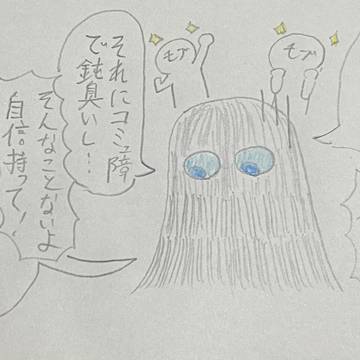 モブ
モブ
それにコミュ障
で鈍臭いし…
そんなことないよ
自信持って！